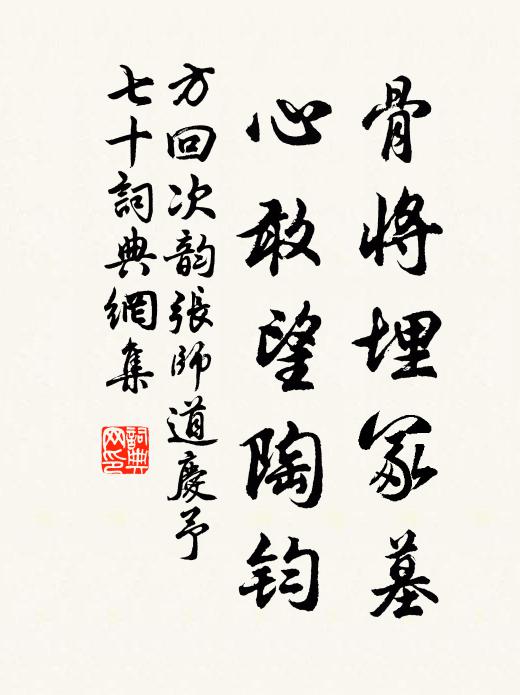 骨将埋冢墓
心敢望陶钧
方回次韵張師道慶予
七十詞典網集
詞典网印